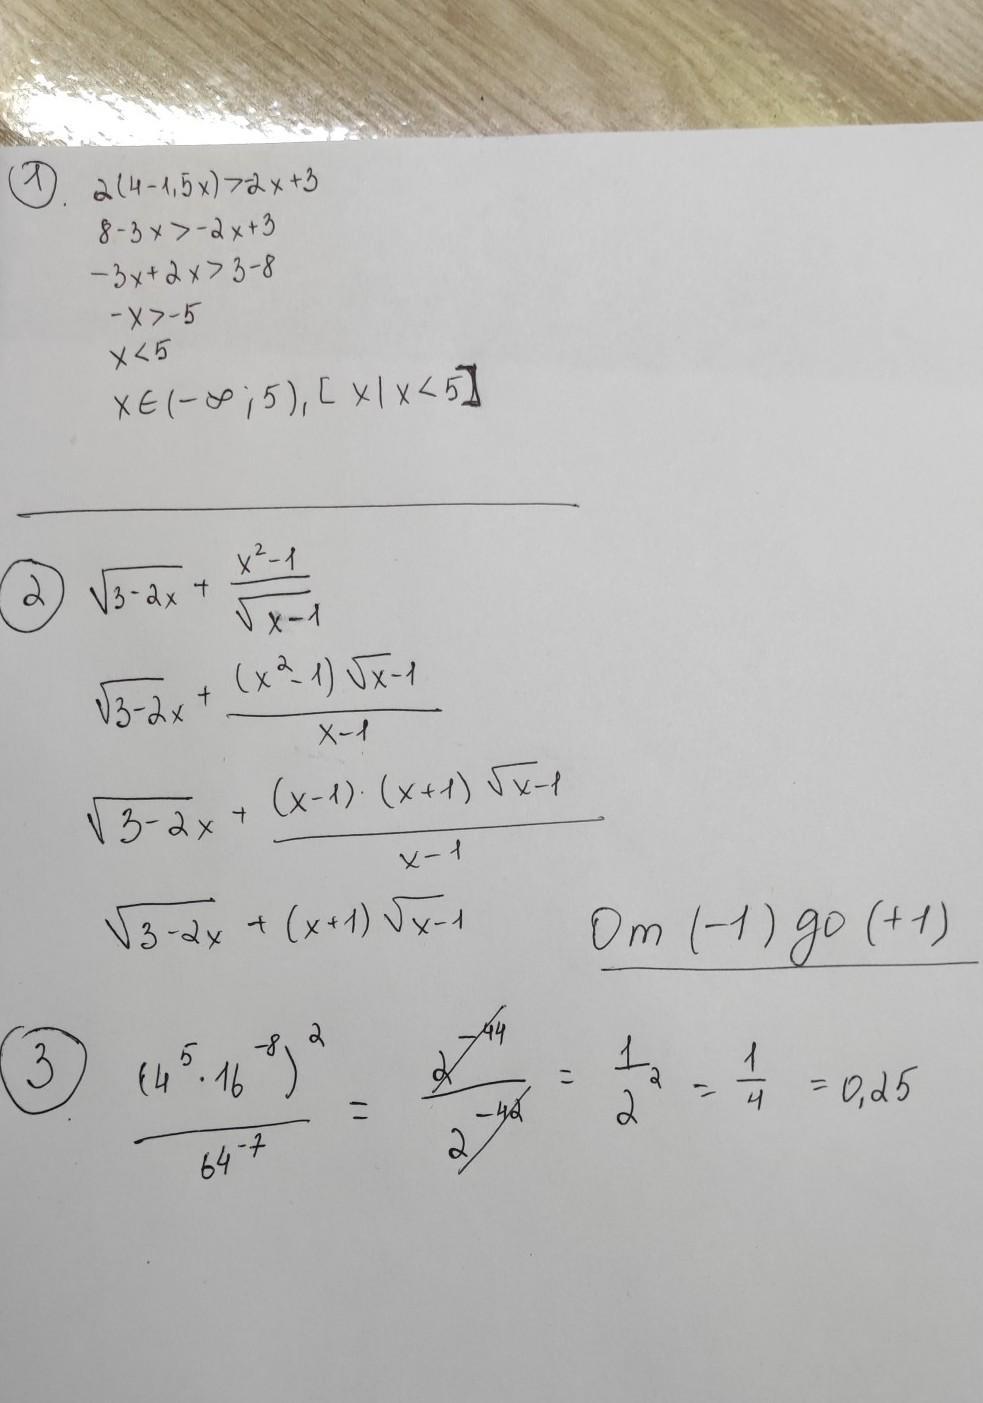 1. 2(4-1,5x)>-2x+3
8-3x>-2x+3
-3x+2x>3-8
-x>-5
x<5
x∈(-∞;5), [x|x<5]
2 √(3-2x) + (x²-1)/√(x-1)
√(3-2)x + ((x²-1)√x-1)/(x-1)
√(3-2)x + ((x-1)·(x+1)√x-1)/(x-1)
√(3-2x) + (x+1)√x-1
От (-1) до (+1)
3 (4⁵·16⁻⁸)²/64⁻⁷ = 2⁻⁴⁴/2⁻⁴² = 1/2² = 1/4 = 0,25